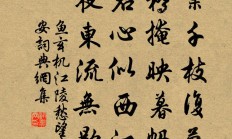 葉千枝復萬
橋掩映暮帆
君心似西江
夜東流無歇
魚玄机江陵愁望
安詞典網集